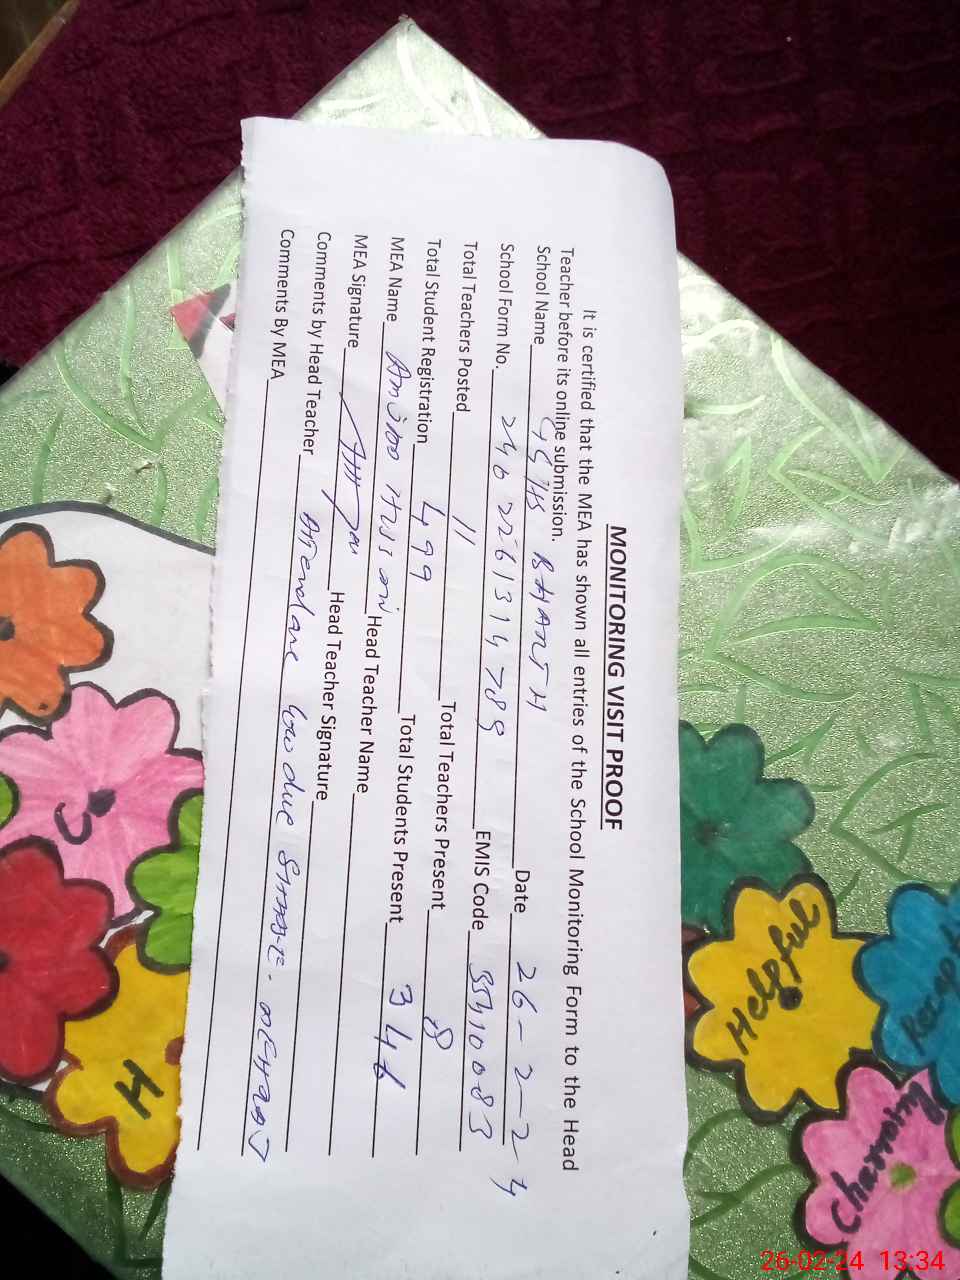 MONITORING VISIT PROOF
It is certified that the MEA has shown all entries of the School Monitoring Form to the Head
Teacher before its online submission.
School Name BHANTH Date 26-2-24
School Form No. 2402261314789 EMIS Code
Total Teachers Posted 11 Total Teachers Present 8
Total Student Registration 499 Total Students Present 346
MEA Name Head Teacher Name
MEA Signature Head Teacher Signature
Comments by Head Teacher Attendance low due
Comments By MEA
Helpful
Charming
C
H
26-02-24 13:34